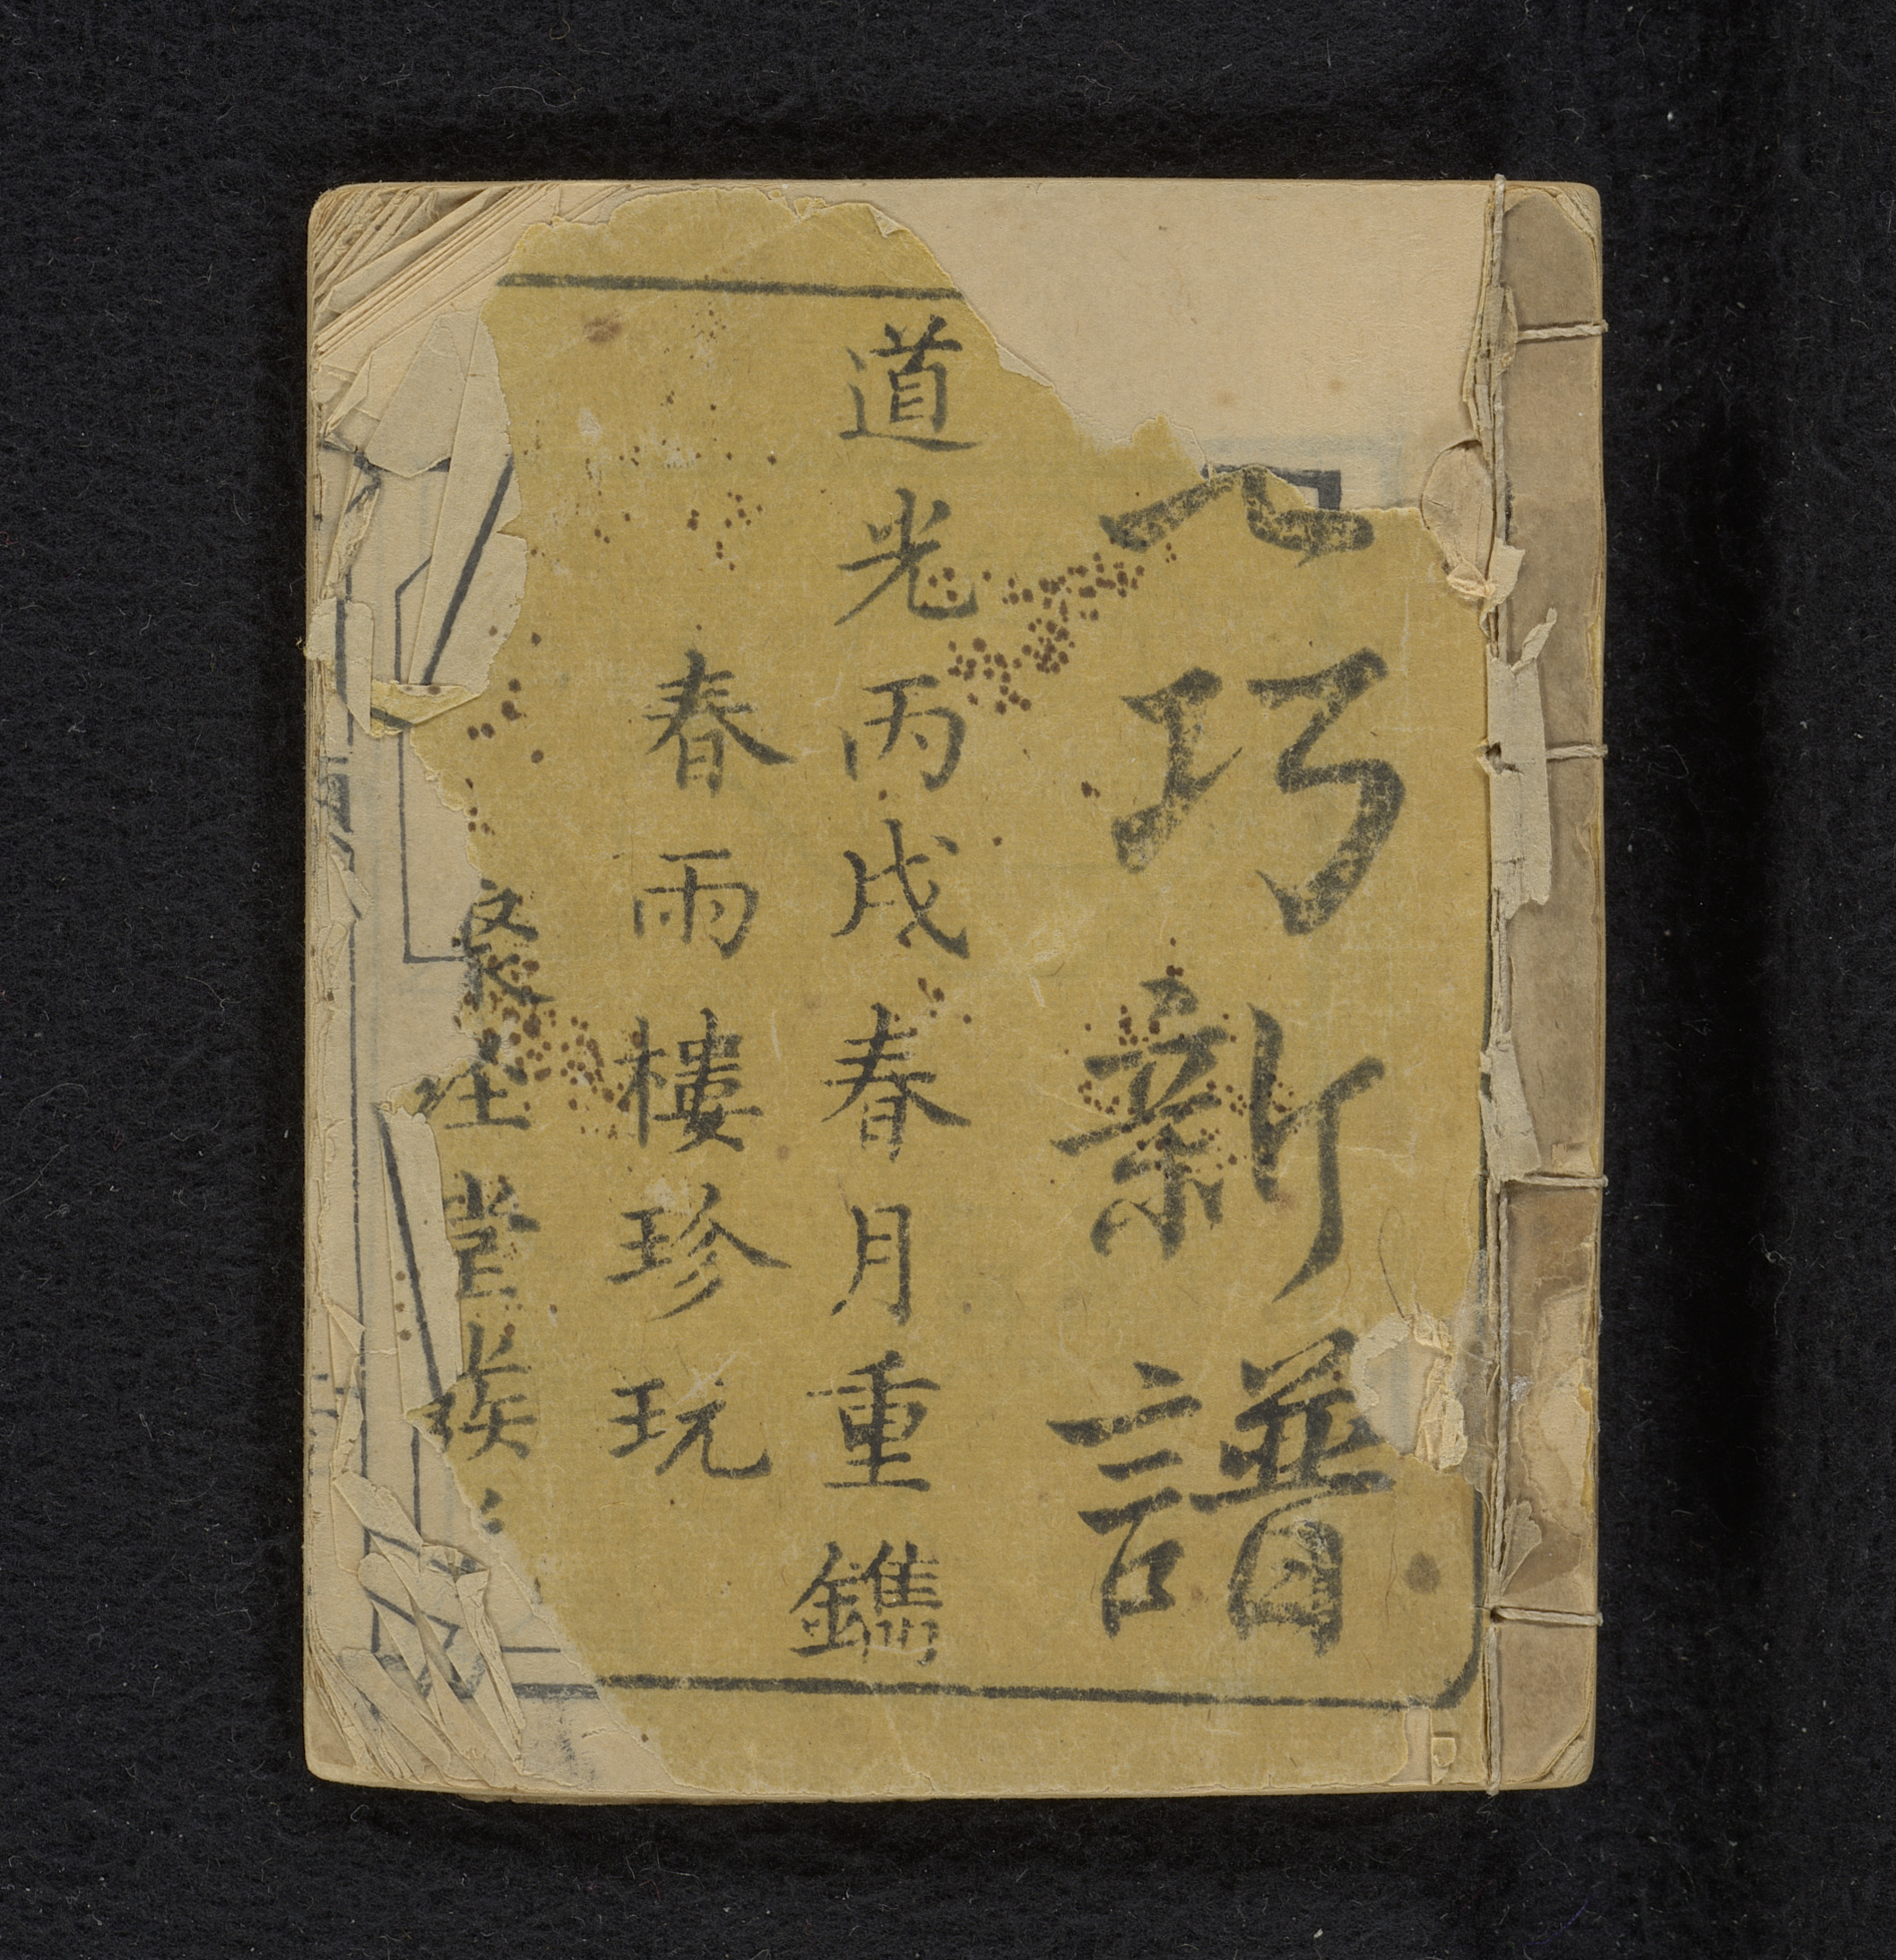 巧新譜
道光丙戌春月重鐫
春雨樓珍玩
堂